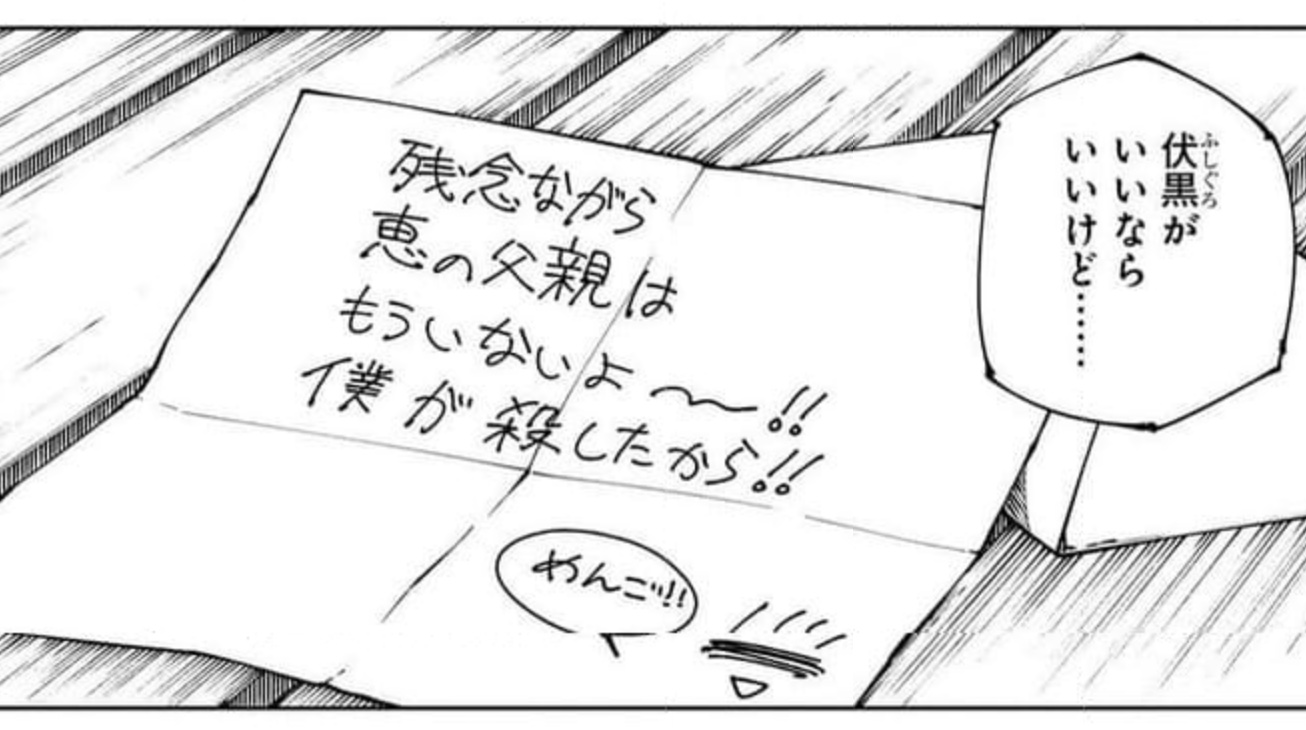 伏黒が
いいなら
いいけど……
ふしぐろ
残念ながら
恵の父親は
もういないよ〜!!
僕が殺したから!!
めんごッ!!